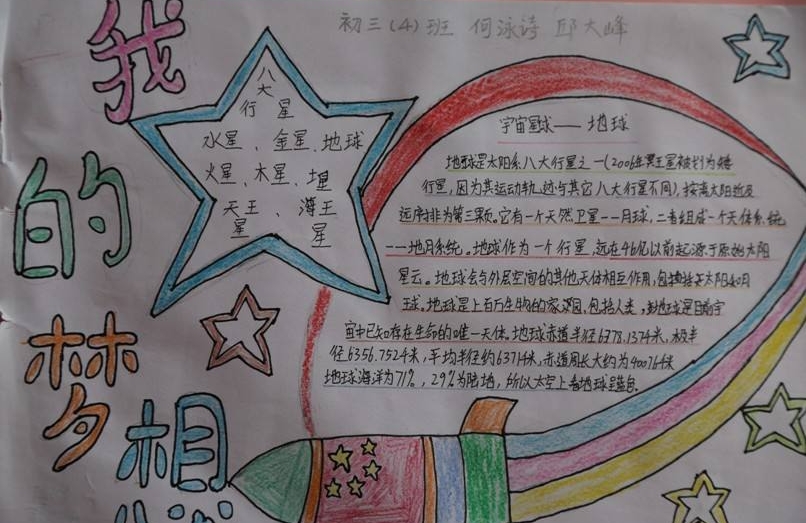 初三(4)班 何泳诗 邱大峰
我的梦想
八大
行星
水星、金星、地球
火星、木星、土星
天王星、海王星
宇宙星球——地球
地球是太阳系八大行星之一(2006年冥王星被划为矮
行星,因为其运动轨迹与其它八大行星不同),按离太阳近及
远序排为第三颗。它有一个天然卫星——月球,二者组成一个天体系统
——地月系统。地球作为一个行星,远在46亿以前起源于原始太阳
星云。地球会与外层空间的其他天体相互作用,包括太阳和月
球。地球是上百万生物的家园,包括人类,地球是目前宇
宙中已知存在生命的唯一天体。地球赤道半径6378.137千米,极半
径6356.752千米,平均半径约6371千米,赤道周长大约为40076千米
地球海洋为71%,29%为陆地,所以太空上看地球呈蓝色。